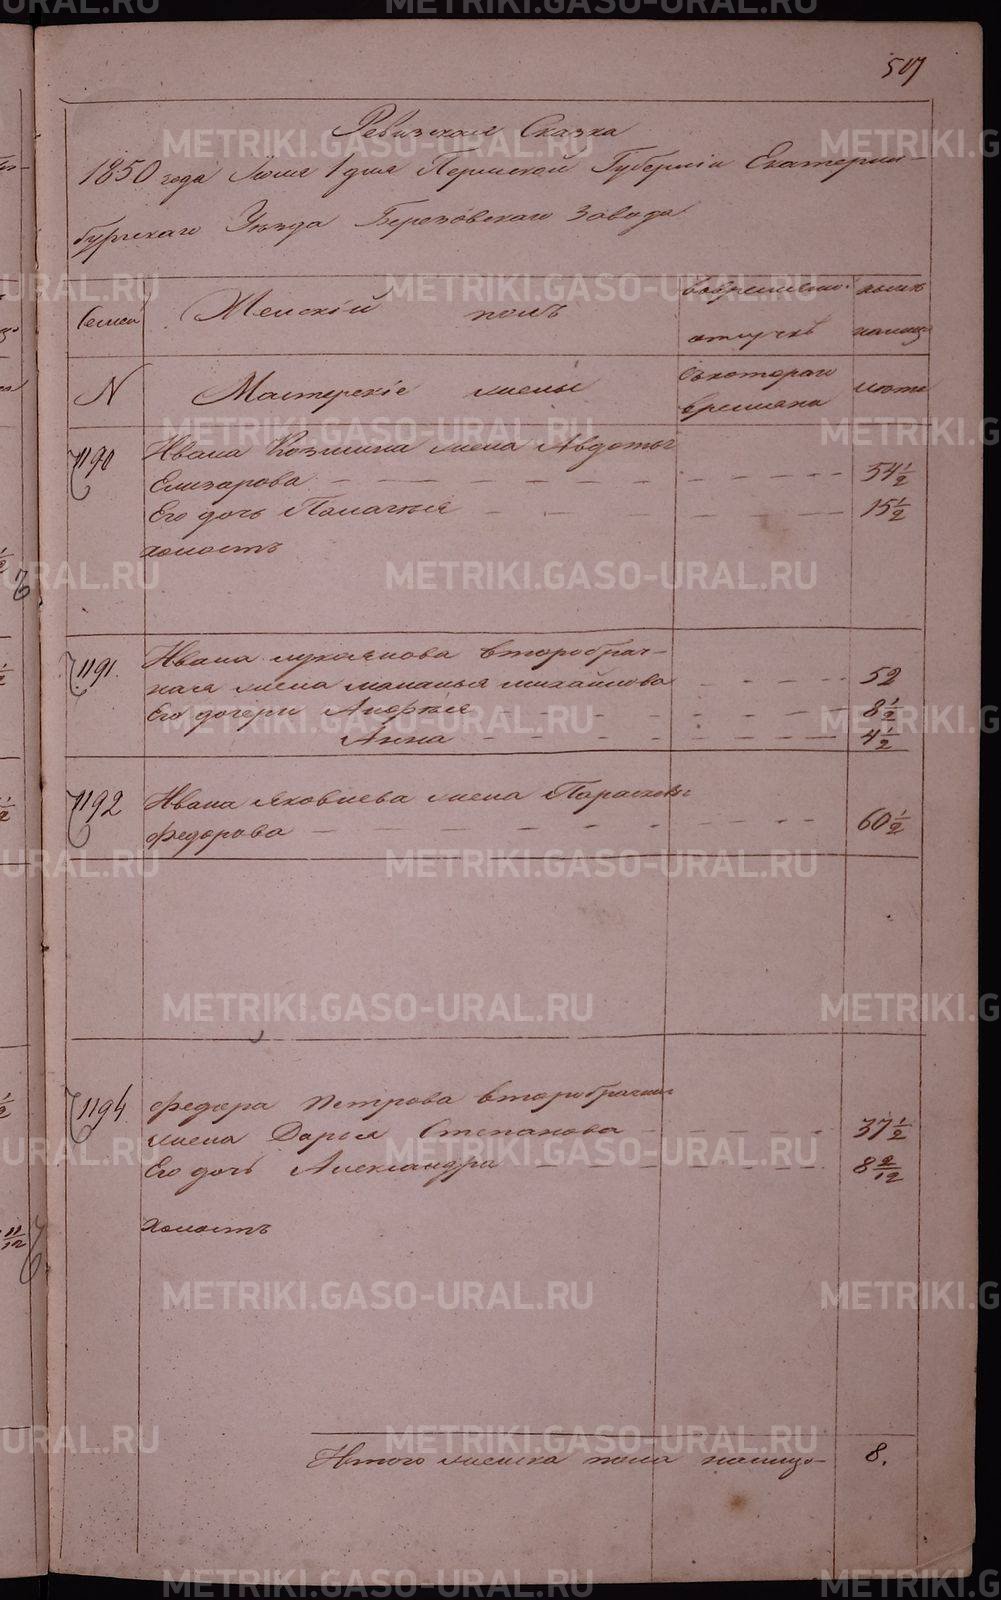 507
Ревизская Сказка
1850 года Июля 1 дня Пермской Губернiи Екатерин-
бургскаго Уезда Березовскаго Завода
Семей Женскiй полъ вовременно. ныне
отлучке налицо
N Мастерскiе жены съкотораго лета
времяна
1190 Ивана Козмина жена Авдотья
Елизарова 54 1/2
Его дочь Палагея 15 1/2
холостъ
1191. Ивана лукоянова второбрач-
ная жена маланья михайлова 52
Его дочери 8 1/2
Анна 4 1/2
1192 Ивана Яковлева жена Парасковья
федорова 60 1/2
1194 федора Петрова второбрачная
жена Дарья Степанова 37 1/2
Его дочь Александра 8 2/12
холостъ
Итого женска пола налицо 8.
METRIKI.GASO-URAL.RU